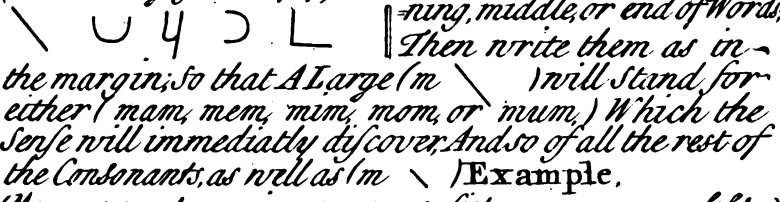 ning, middle, or end of Words,
Then write them as in
the margin; So that A Large (m \ ) will Stand for
either (mam, mem, mim, mom, or mum,) Which the
Senſe will immediatly diſcover, And so of all the rest of
the Consonants, as well as (m \ ) Example.